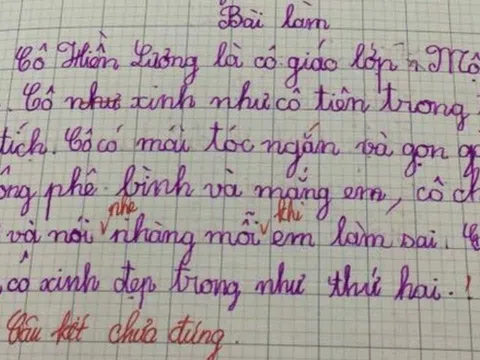 Bài làm
Cô Hiền Lương là cô giáo lớp Mộ
. Cô như xinh như cô tiên trong
tích. Cô có mái tóc ngắn và gọn g
ông phê bình và mắng em, cô ch
và nói nhẹ nhàng mỗi khi em làm sai.
cô xinh đẹp trong như thứ hai.!
Câu kết chưa đúng.